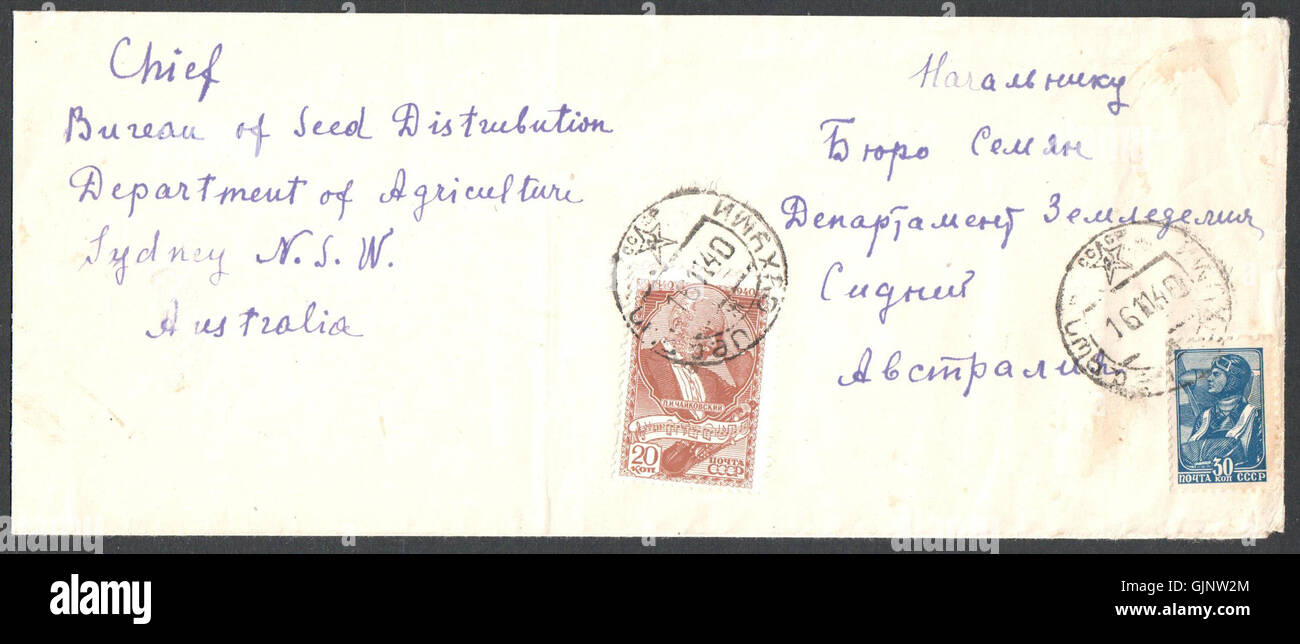 Chief
Bureau of Seed Distrubution
Department of Agriculture
Sydney N.S.W.
Australia
Начальнику
Бюро Семян
Департамент Земледелия
Сидней
Австралия
1940
П.И.ЧАЙКОВСКИЙ
20
КОП
ПОЧТА
СССР
16 11 40
30
ПОЧТА КОП СССР
alamy
Image ID: GJNW2M
www.alamy.com